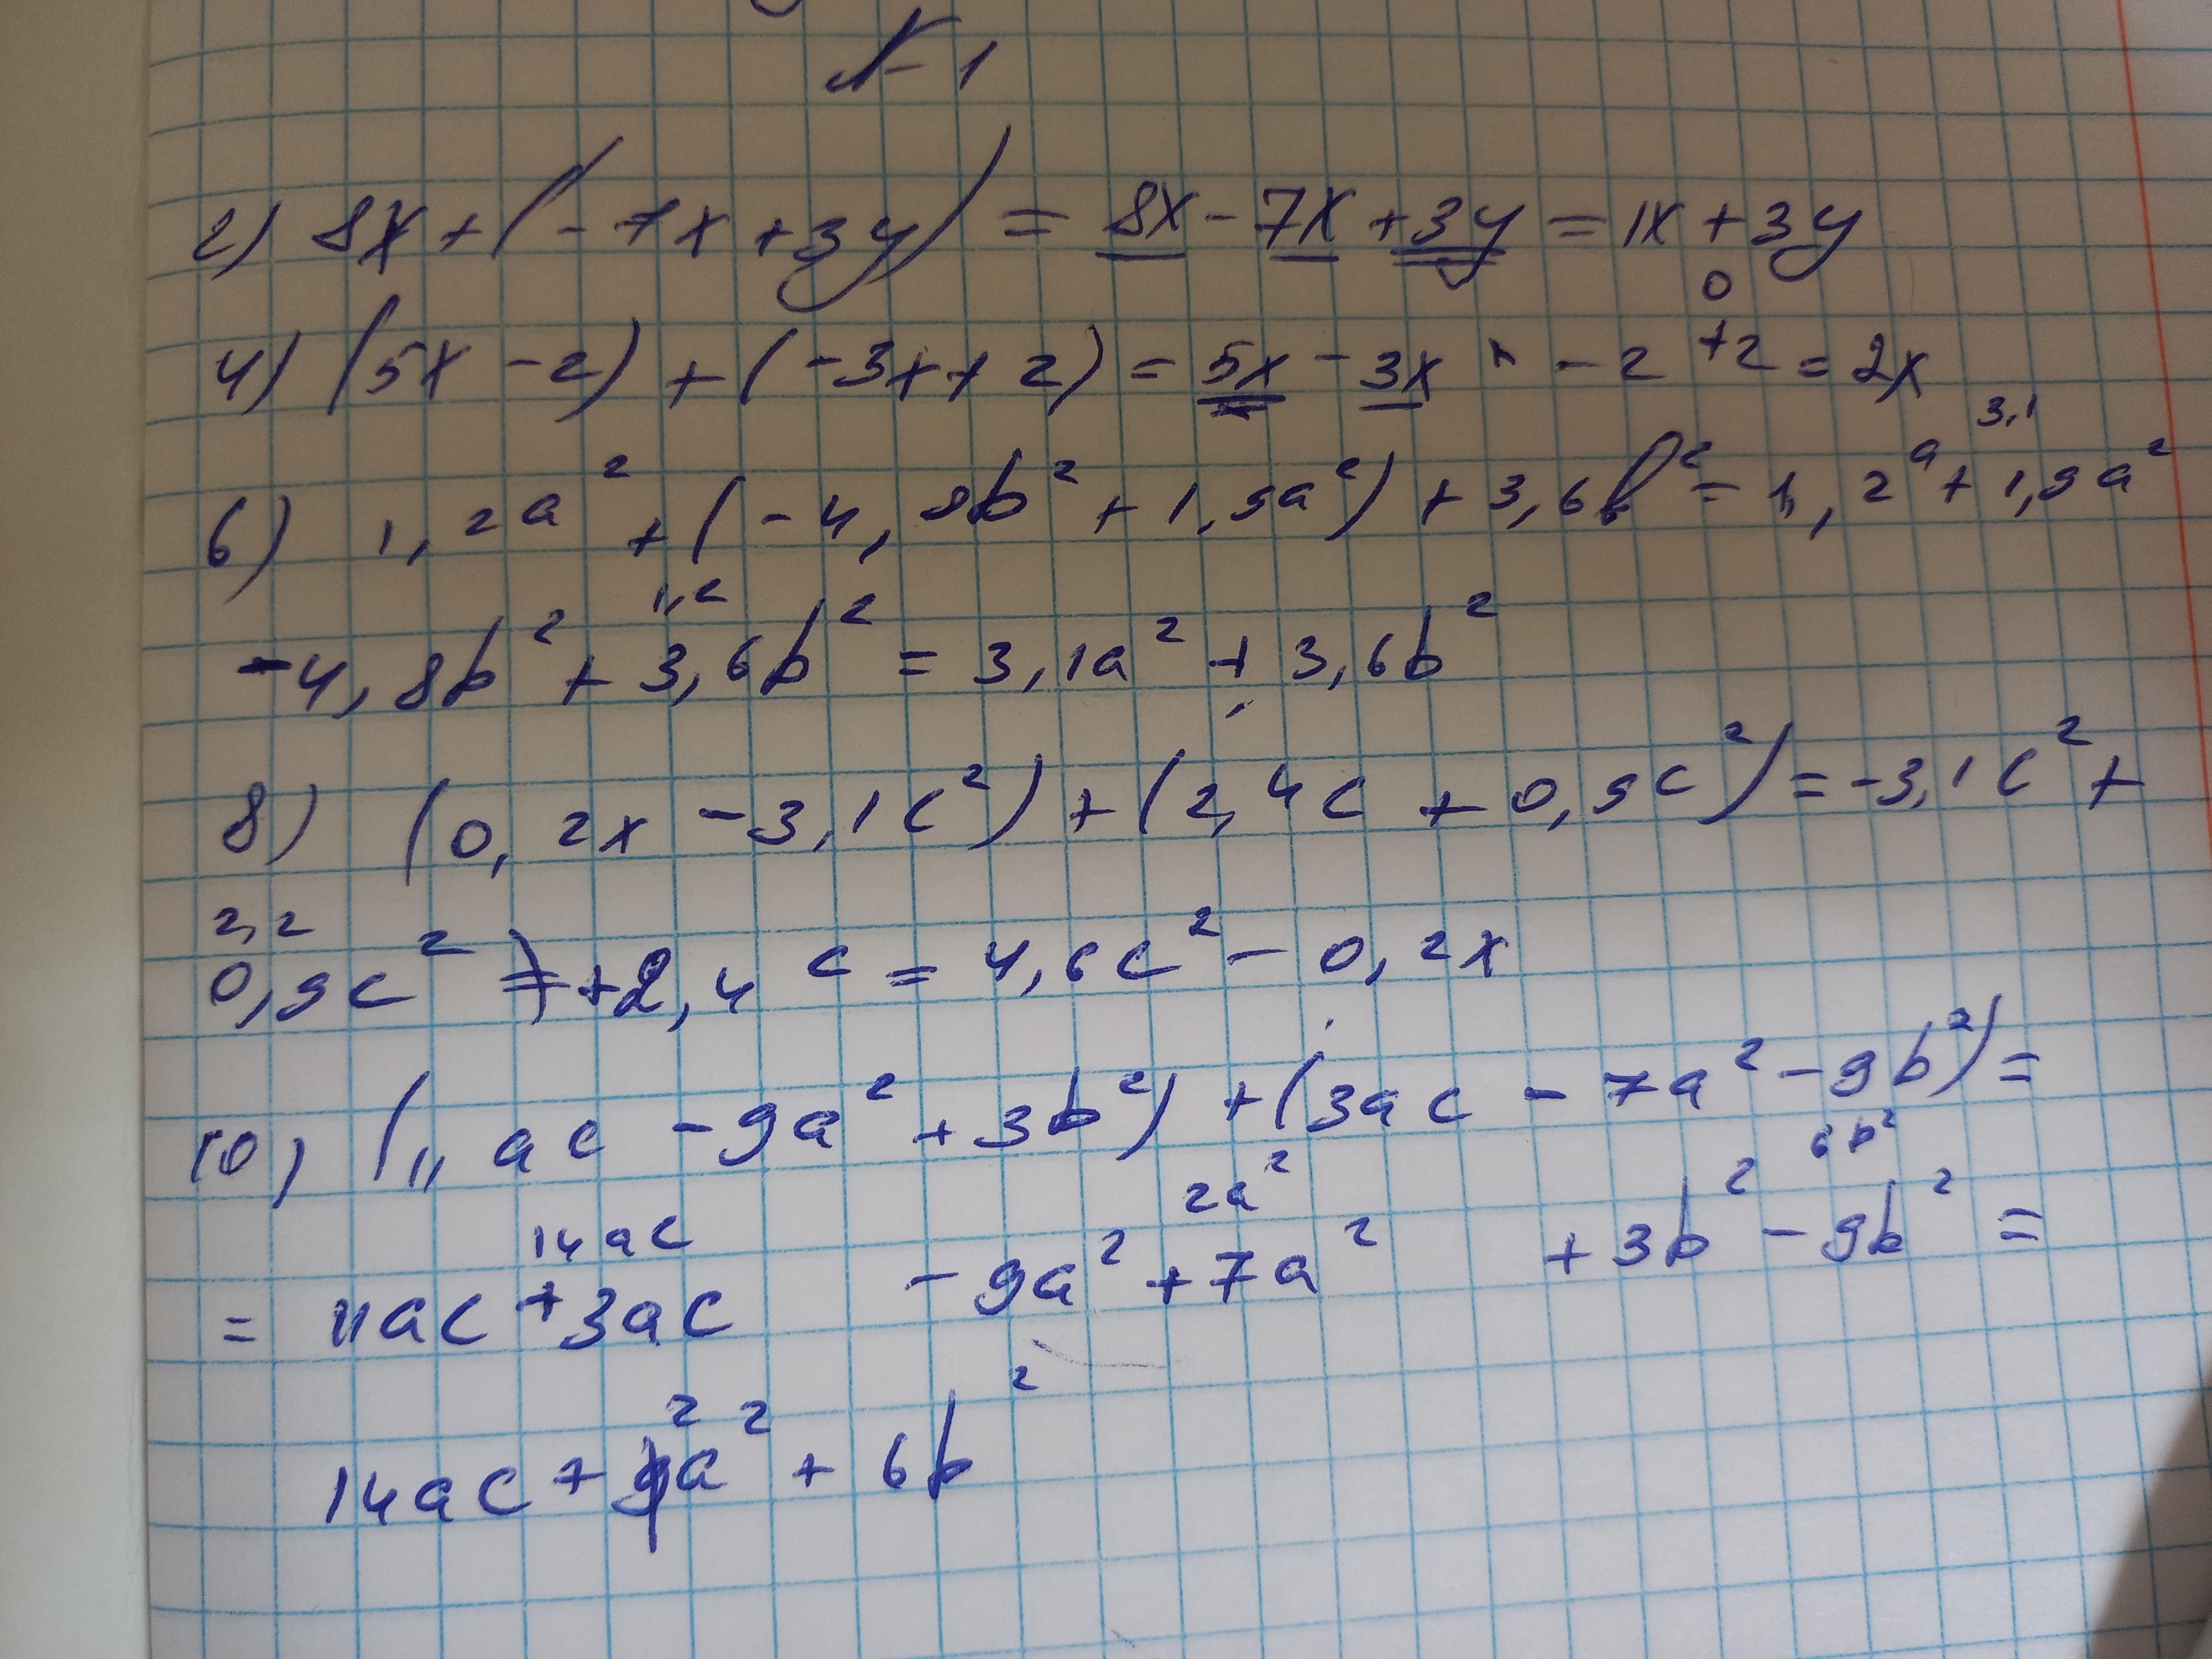 №1
2) 8x + (-7x + 3y) = 8x - 7x + 3y = 1x + 3y
0
4) (5x - 2) + (-3x + 2) = 5x - 3x - 2 + 2 = 2x
3,1
6) 1,2a² + (-4,8b² + 1,9a²) + 3,6b² = 1,2a + 1,9a²
1,2
-4,8b² + 3,6b² = 3,1a² + 3,6b²
8) (0,2x - 3,1c²) + (2,4c + 0,9c²) = -3,1c² +
2,2
0,9c² + 2,4c = 4,6c² - 0,2x
10) (11ac - 9a² + 3b²) + (3ac - 7a² - 9b²) =
14ac 2a² 6b²
= 11ac + 3ac - 9a² + 7a² + 3b² - 9b² =
2
14ac + 9a² + 6b²